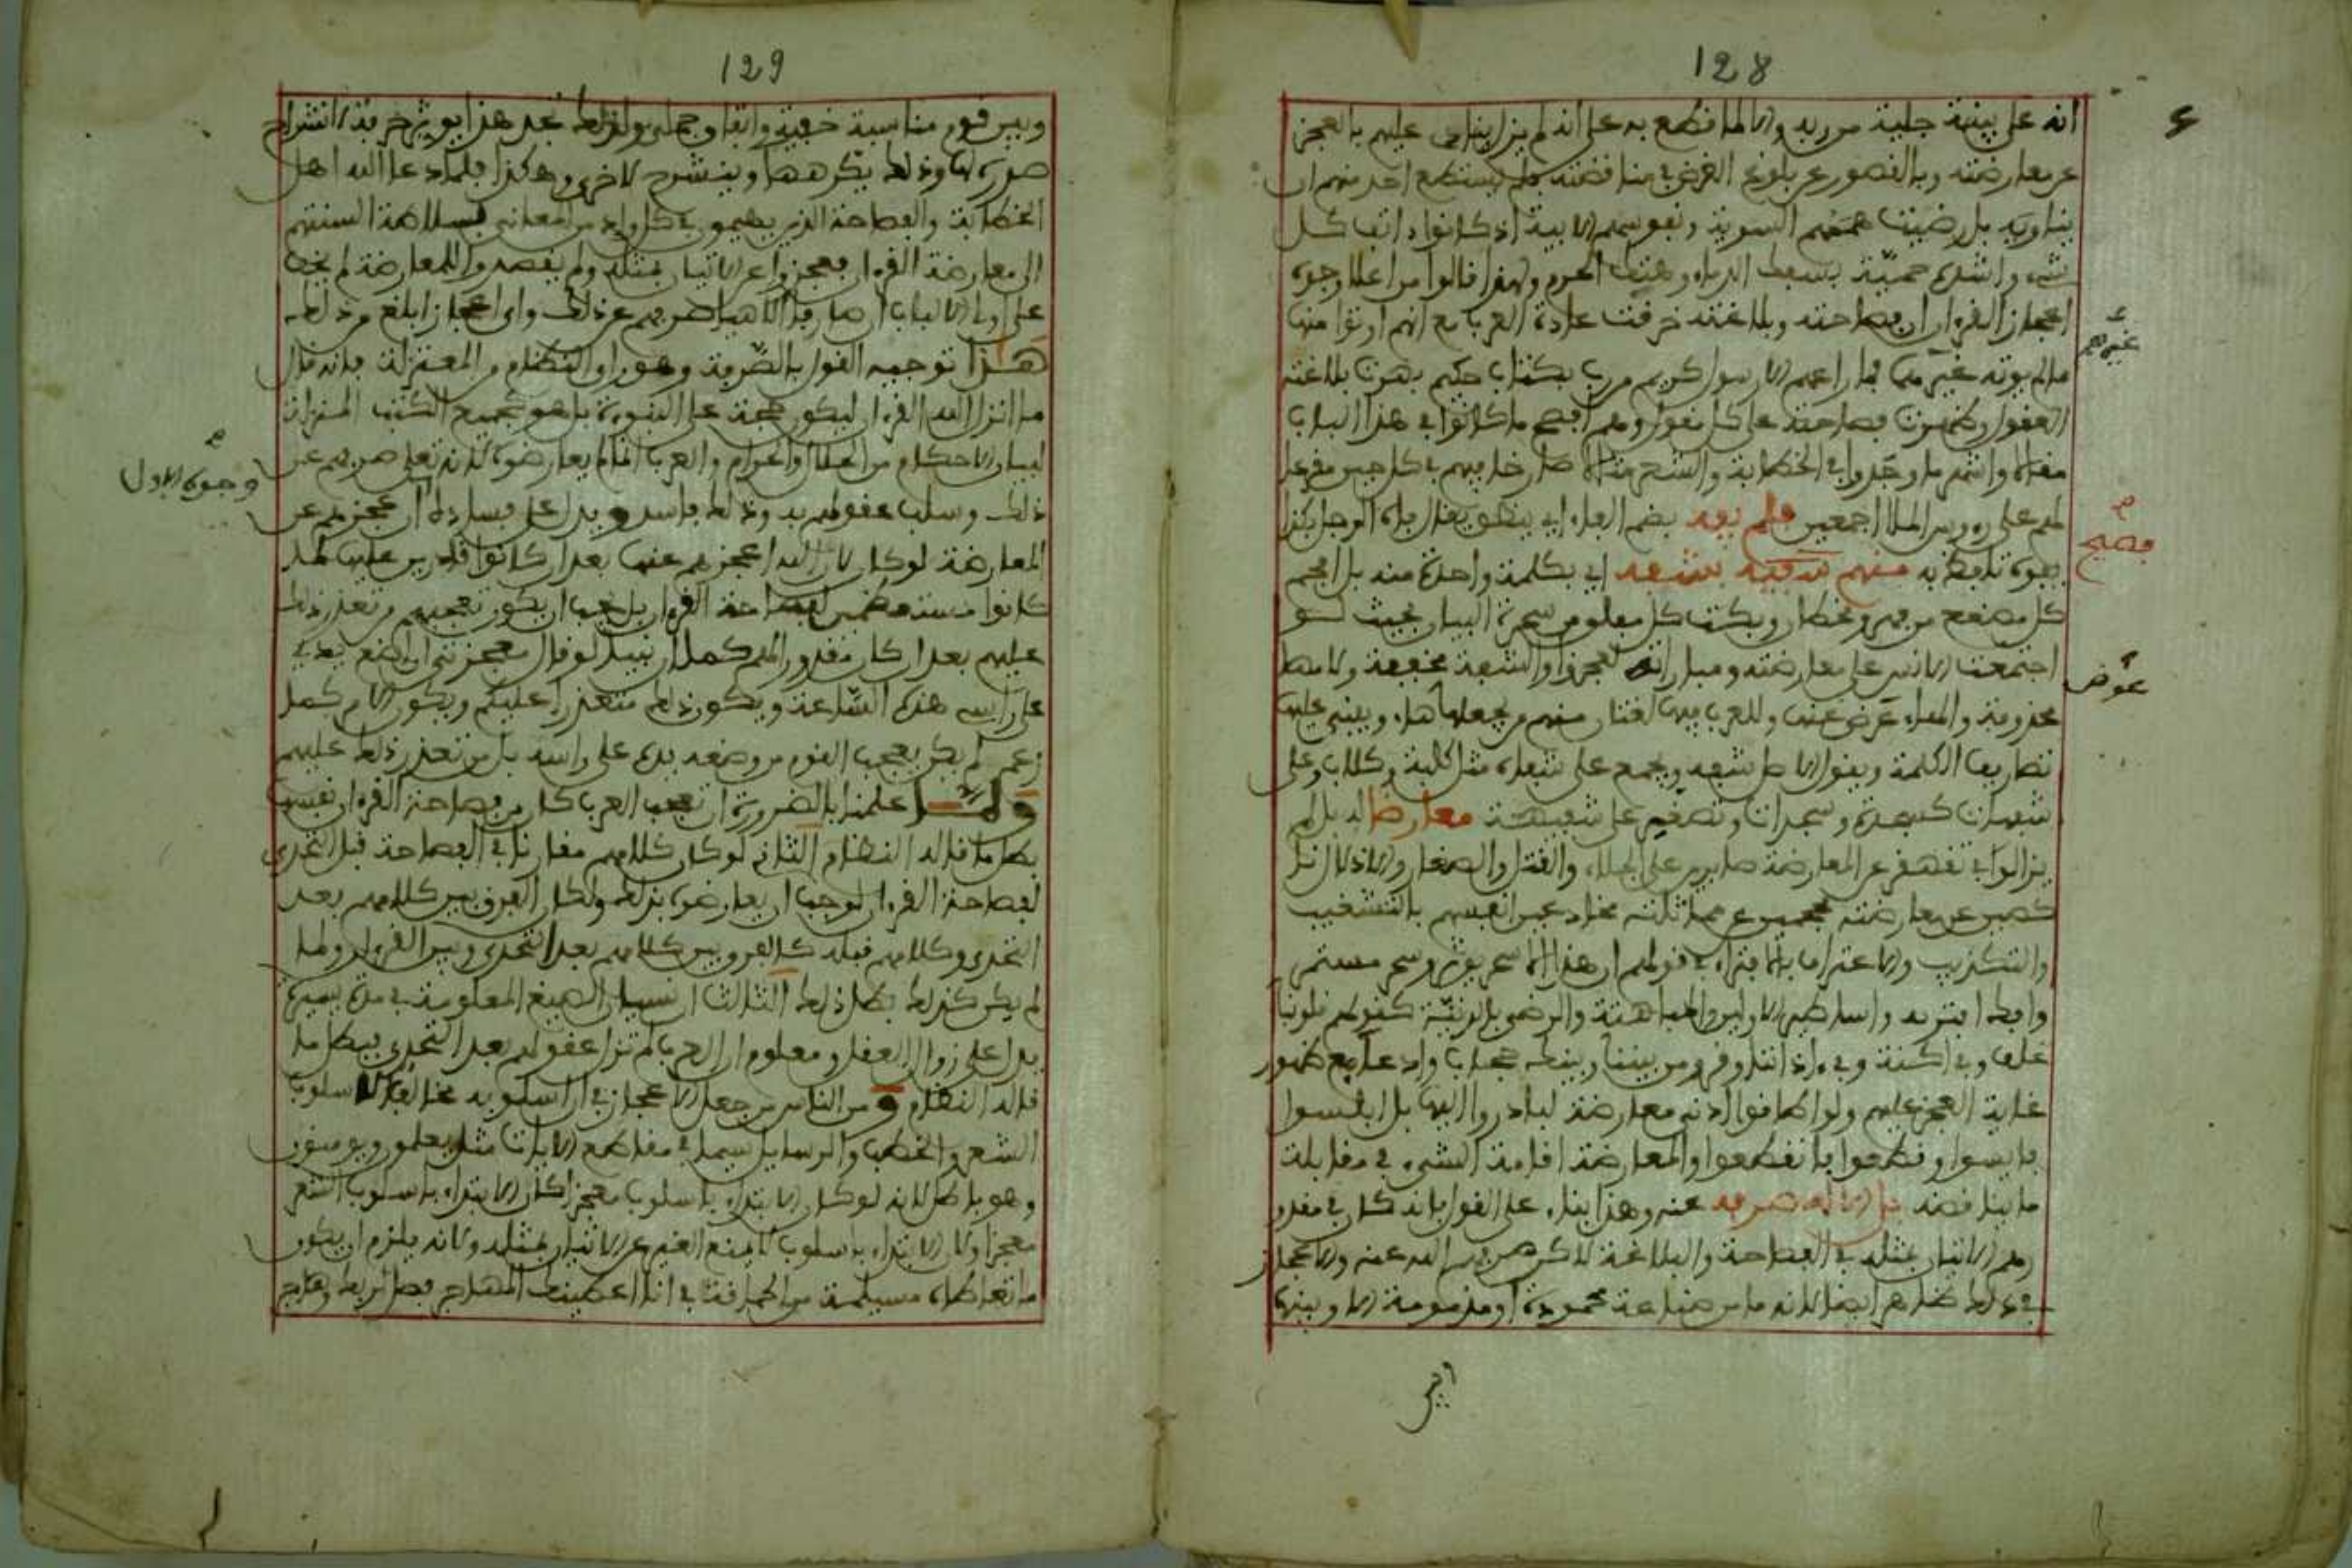 128
انه على بينة جلية من ربه والا لما قطع به على انه لم يزل ينادى عليهم بالعجز
عن معارضته وبالقصور عن بلوغ الغرض في مناقضته فلم يستطع احد منهم ان
يناويه بل رضيت هممهم السوية ونفوسهم الابية اذ كانوا انف كل
شيء واشده حمية بسفك الدماء وهتك الحرم ولهذا قالوا من اعلا وجوه
اعجاز القرءان ان فصاحته وبلاغته خرقت عادة العرب مع انهم اوتوا منها
ما لم يوته غيرهم فما راعهم الا رسول كريم من رب بكتاب حكيم بهرت بلاغته
العقول وظهرت فصاحته على كل مقول وهم افصح ما كانوا في هذا الباب
مقالا واشهر ما وجدوا في الخطابة والشعر مثالا صارخا بهم في كل حين مقرعا
لهم على رءوس الملا اجمعين فلم يفه بضم الفاء اي ينطق يقال فاه الرجل بكذا
يفوه تلفظ به منهم فصيح بشفه اي بكلمة واحدة منه بل افحم
كل مصقع من مهرة وخطا وبكت كل مفلق من سحرة البيان بحيث لو
اجتمعت الانس على معارضته ومباراته لعجزوا والشفة مخففة ولامها
محذوفة والهاء عوض عنها وللعرب فيها لغتان منهم من يجعلها هاء ويبني عليها
تصاريف الكلمة ويقول الاصل شفهة ويجمع على شفاه مثل كلبة وكلاب وعلى
شفهات كسجدة وسجدات وتصغير على شفيهة معارضا له بل لم
يزالوا في تقهقر عن المعارضة صابرين على الجلاء والقتل والصغار والاذلال نا
كصين عن معارضته محجمين عن مماثلته مخادعين انفسهم بالتشغيب
والتكذيب والاعتراف بالافتراء في قولهم ان هذا الا سحر يوثر وسحر مستمر
وافك افتريه واساطير الاولين والمباهتة والرضى بالدنية كقولهم قلوبنا
غلف وفي اكنة وفي ءاذاننا وقر ومن بيننا وبينك حجاب وادعاء مع ظهور
غاية العجز عليهم ولو اطاقوا ادنى معارضة لبادروا اليها بل ابلسوا
فايسوا وقطعوا فانقطعوا والمعارضة اقامة الشيء في مقابلة
ما يناقضه بل الاله صرفه عنه وهذا بناء على القول بانه كان في مقدو
رهم الاتيان بمثله في الفصاحة والبلاغة لاكن صرفهم الله عنه والاعجاز
في ذلك ظاهر ايضا لانه ما من صناعة محمودة او مذمومة الا وبينها
وبين
غيرهم
فصيح
عوض
129
وبين قوم مناسبة خفية واتفاق جملي ولذلك نجد هذا يوثر حرفة لانشراح
صدره لها وذلك يكرهها وينشرح لاخرى وهكذا فلما دعا الله اهل
الخطابة والفصاحة الذين يهيمون في كل واد من المعاني بسلاطة السنتهم
الى معارضة القرءان فعجزوا عن الاتيان بمثله ولم يقصدوا للمعارضة لم يخف
على اولى الالباب ان صارفا الاهيا صرفهم عن ذلك واي اعجاز ابلغ من ذلك
هذا توجيه القول بالصرفة وهو راى النظام من المعتزلة فانه قال
ما انزل الله القرءان ليكون حجة على النبوة بل هو كجميع الكتب المنزلة
لبيان الاحكام من الحلال والحرام والعرب انما لم يعارضوه لانه تعلى صرفهم عن
ذلك وسلب عقولهم به وذلك فاسد ويدل على فساده ان عجزهم عن
المعارضة لو كان لان الله اعجزهم عنها بعد ان كانوا قادرين عليها لما
كانوا مستعظمين لفصاحة القرءان بل يجب ان يكون تعجبهم من تعذر ذلك
عليهم بعد ان كان مقدورا لهم كما ان نبيا لو قال معجزتي ان اضع يدي
على راسي هذه الساعة ويكون ذلك متعذرا عليكم ويكون الامر كما
زعم لم يكن يعجب القوم من وضعه يده على راسه بل من تعذر ذلك عليهم
ولما علمنا بالضرورة ان تعجب العرب كان من فصاحة القرءان نفسها
بطل ما قاله النظام الثاني لو كان كلامهم مقارنا في الفصاحة قبل التحدي
لفصاحة القرءان لوجب ان يعارضوه بذلك ولكان الفرق بين كلامهم بعد
التحدي وكلامهم قبله كالفرق بين كلامهم بعد التحدي وبين القرءان ولما
لم يكن كذلك بطل ذلك الثالث ان نسيان الصيغ المعلومة في مدة يسيرة
يدل على زوال العقل ومعلوم ان العرب لم تزل عقولهم بعد التحدي فبطل ما
قاله النظام ومن الناس من جعل الاعجاز في ان اسلوبه مخالف لاسلوب
الشعر والخطب والرسايل سيما في مقاطع الايات مثل يعلمون ويومنون
وهو باطل لانه لو كان الابتداء باسلوب معجزا كان الابتداء باسلوب الشعر
معجزا ولان الابتداء باسلوب لا يمنع الغير عن الاتيان بمثله ولانه يلزم ان يكون
ما تعاطاه مسيلمة من الحماقة في انا اعطينك الجماهر فصل لربك وهاجر
وجوه الاول